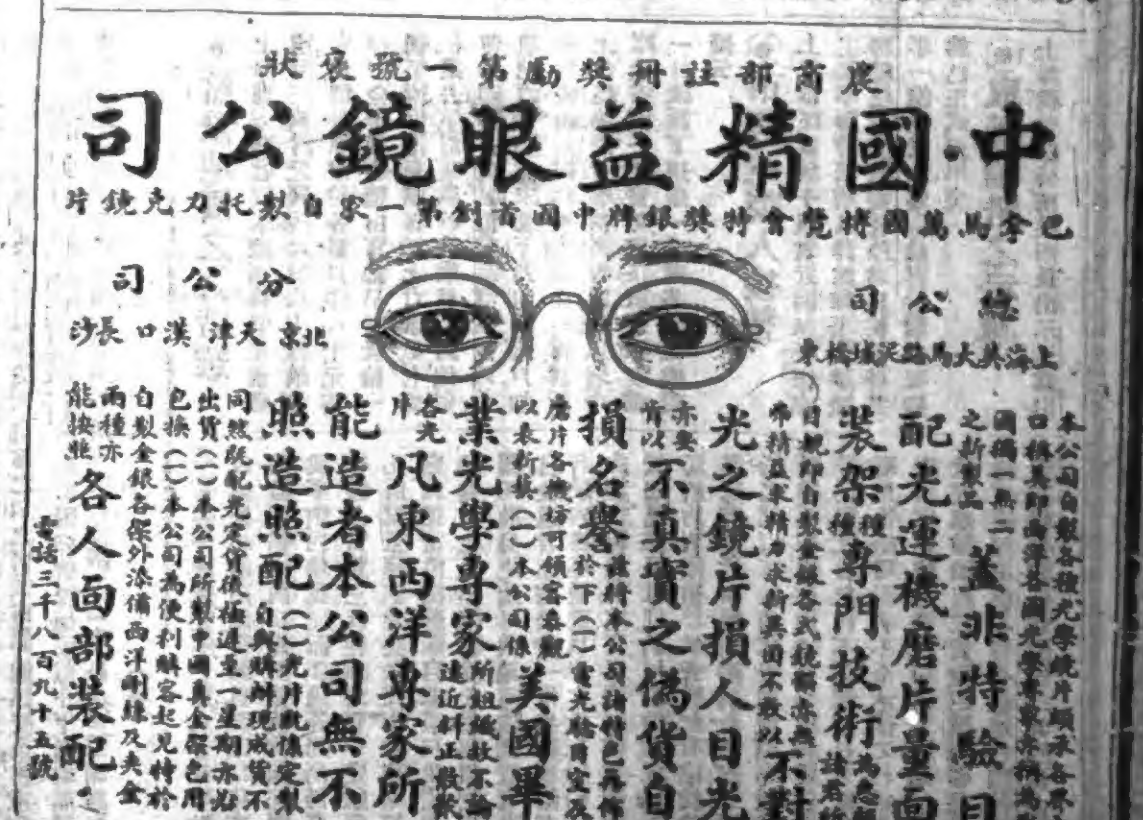 農商部註冊奬勵第一號褒狀
中國精益眼鏡公司
巴拿馬萬國博覽會特奬銀牌中國首創第一家自製托力克鏡片
總公司
上海英大馬路泥城橋東
分公司
北京 天津 漢口 長沙
本公司自製各種光學鏡片頗承各界
口稱美即西洋各國光學專家亦稱為
國獨一無二
之新製品
蓋非特驗目
配光運機磨片量面
裝架種種專門技術
諸君
目規即自製金銀各式鏡
弗精益求精力求新異固不敢以
不對
光之鏡片損人目光
亦不肯以
不真實之偽貨自
損名譽
茲將本公司諸特色再佈
於下(一)電光驗目室及
磨片各機坊可領客參觀
以表新藝(一)本公司係
美國畢
業光學專家
所組織故不論
遠近斜正散
各光片
凡東西洋專家所
能造者本公司無不
照造照配
(一)光片既係定製
自與購辦現成貨不
同然既配光定貨後極遲至一星期亦必
出貨(一)本公司所製中國真金架包用
包換(一)本公司為便利購客起見特於
自製金銀各架外添備西洋鋼絲及夾金
兩種亦
能按照
各人面部裝配
電話三千八百九十五號